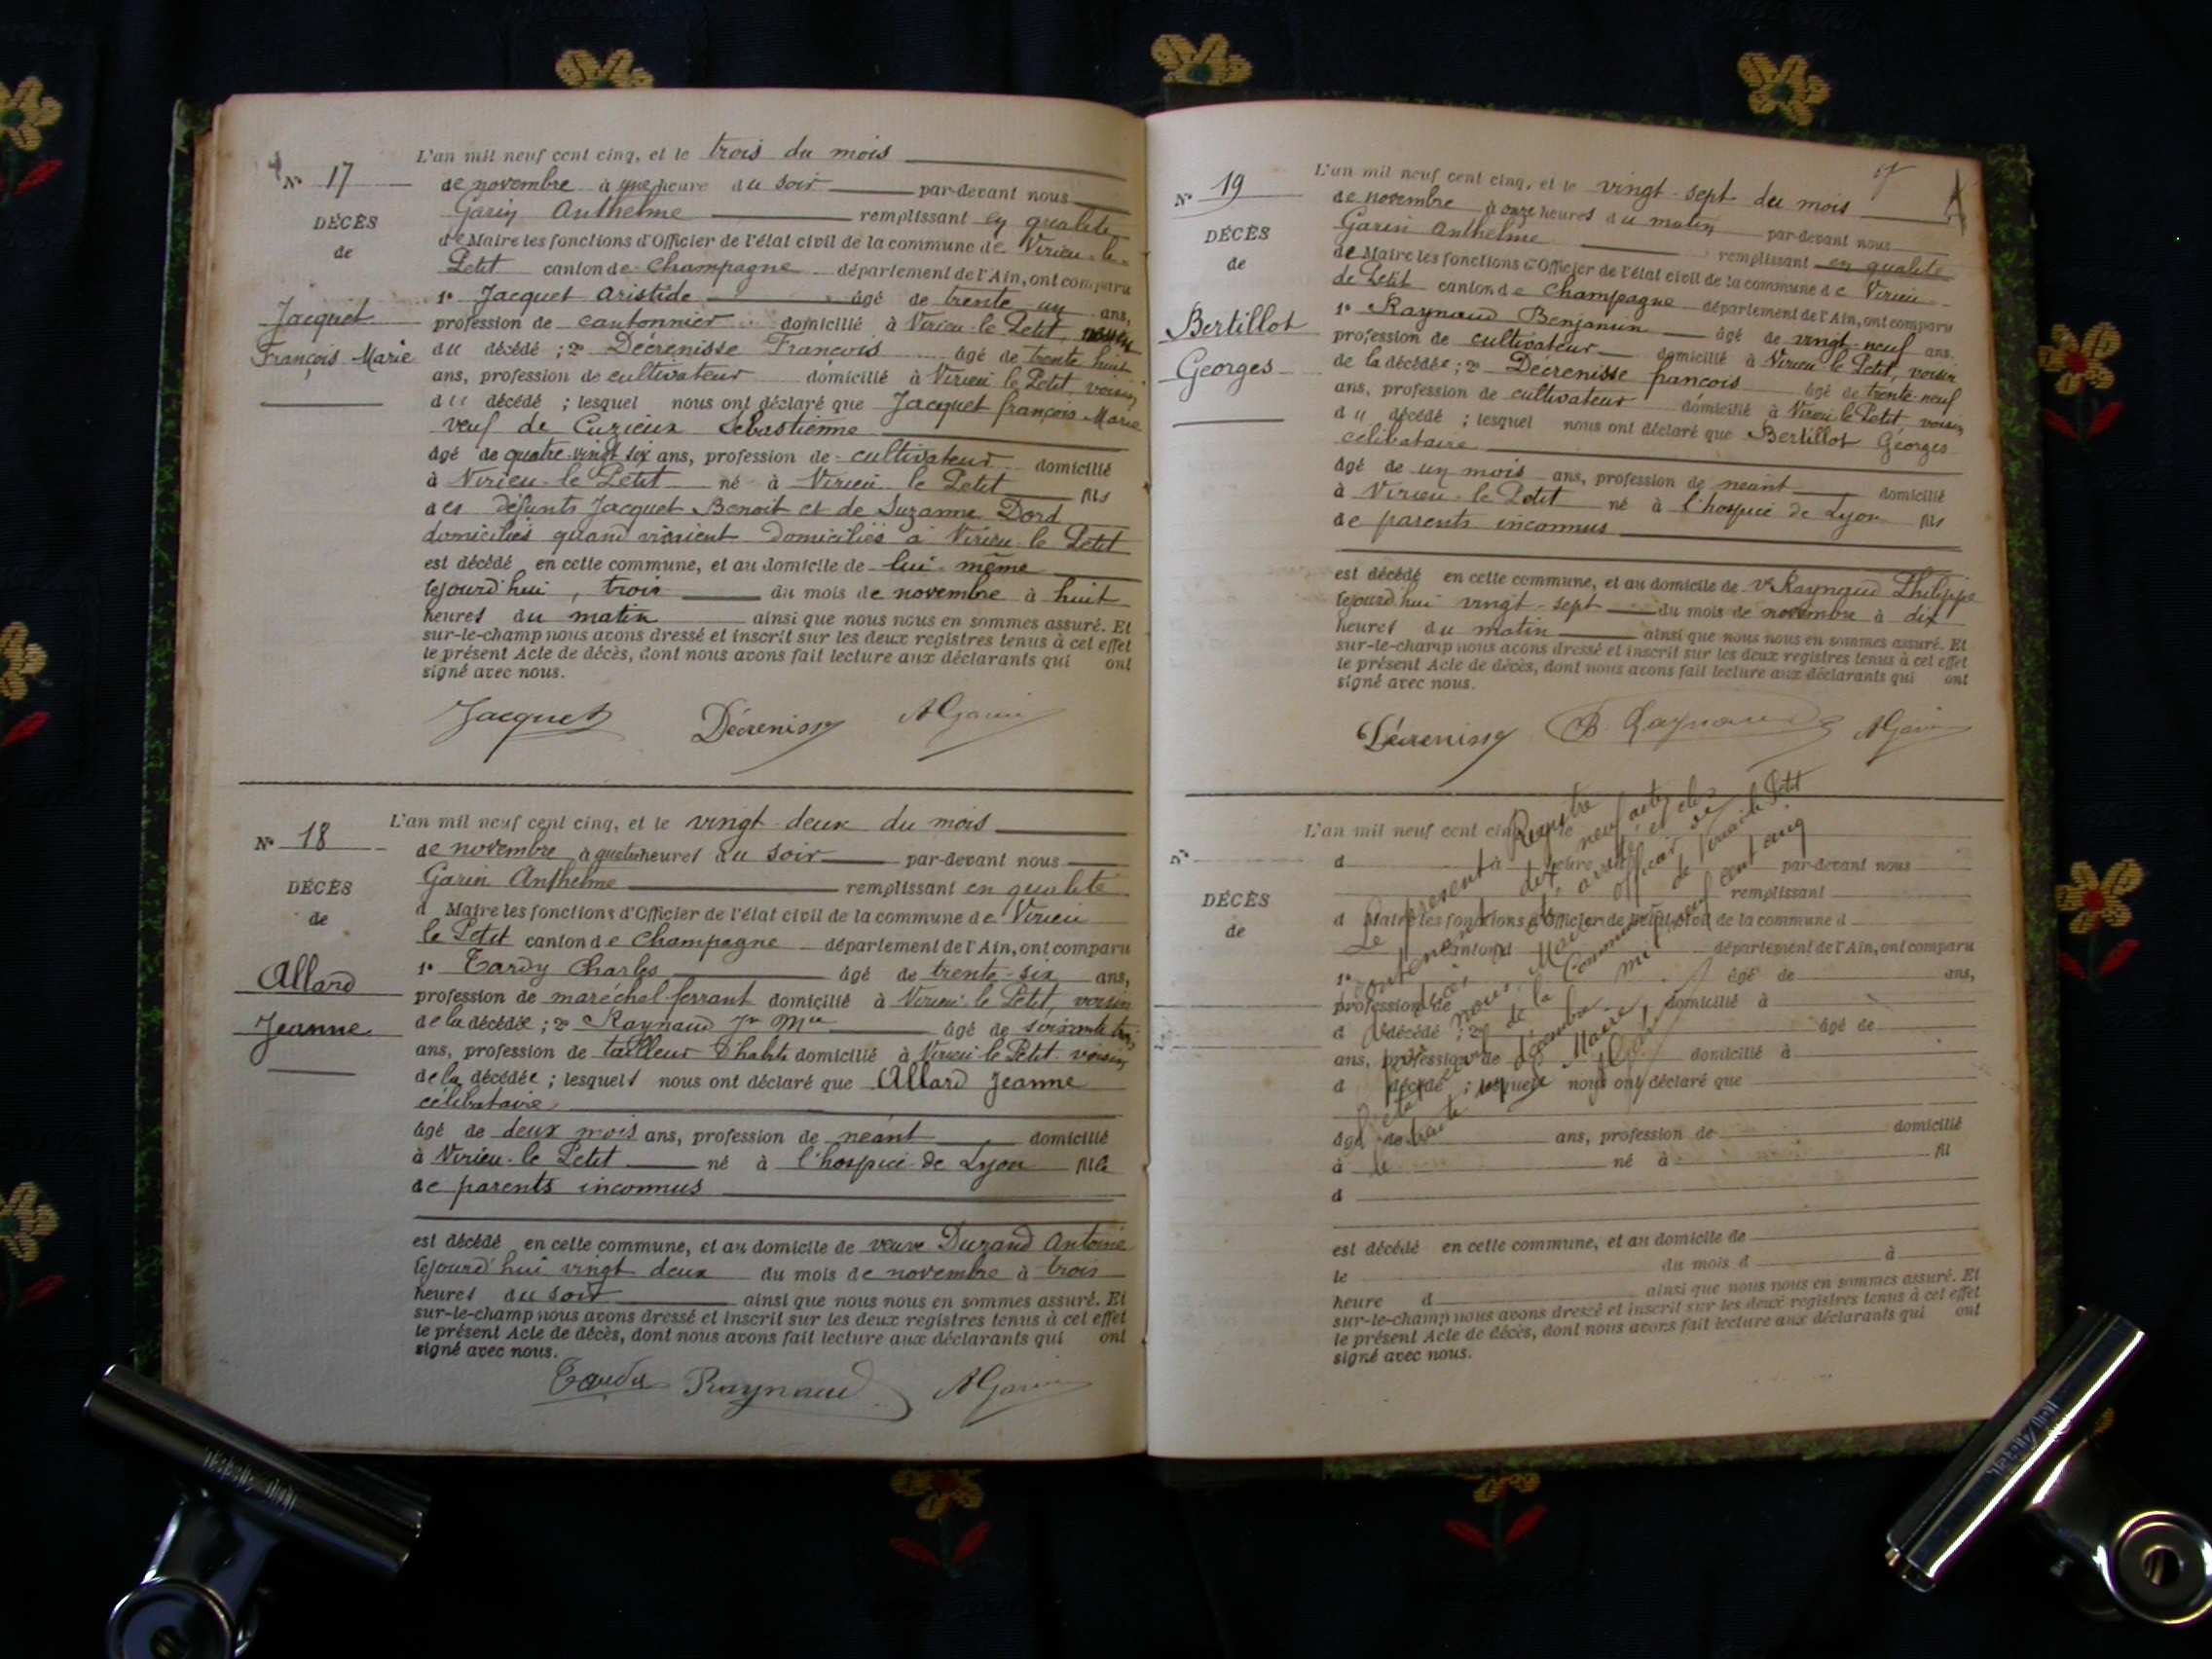 Nº 17
DÉCÈS
de
Jacquet
François Marie
L'an mil neuf cent cinq, et le trois du mois
de novembre à une heure du soir par-devant nous
Garin Anthelme remplissant en qualité
de Maire les fonctions d'Officier de l'état civil de la commune de Virieu-le-
Petit canton de Champagne département de l'Ain, ont comparu
1º Jacquet Aristide âgé de trente-un ans,
profession de cantonnier domicilié à Virieu-le-Petit, neveu
du décédé ; 2º Décrenisse François âgé de trente huit
ans, profession de cultivateur domicilié à Virieu le Petit, voisin
du décédé ; lesquel nous ont déclaré que Jacquet françois Marie
veuf de Cuzieux Sébastienne
âgé de quatre-vingt six ans, profession de cultivateur domicilié
à Virieu-le Petit né à Virieu-le Petit fils
des défunts Jacquet Benoit et de Suzanne Dord
domiciliés quand vivaient domiciliés à Virieu-le Petit
est décédé en cette commune, et au domicile de lui-même
cejourd'hui, trois du mois de novembre à huit
heures du matin ainsi que nous nous en sommes assuré. Et
sur-le-champ nous avons dressé et inscrit sur les deux registres tenus à cet effet
le présent Acte de décès, dont nous avons fait lecture aux déclarants qui ont
signé avec nous.
Jacquet Décrenisse AGarin
Nº 18
DÉCÈS
de
Allard
Jeanne
L'an mil neuf cent cinq, et le vingt-deux du mois
de novembre à quatre heures du soir par-devant nous
Garin Anthelme remplissant en qualité
d Maire les fonctions d'Officier de l'état civil de la commune de Virieu
le Petit canton de Champagne département de l'Ain, ont comparu
1º Tardy Charles âgé de trente-six ans,
profession de maréchal ferrant domicilié à Virieu-le Petit, voisin
de la décédée ; 2º Raynaud Jn Mie âgé de soixante trois
ans, profession de tailleur d'habits domicilié à Virieu-le Petit, voisin
de la décédée ; lesquels nous ont déclaré que Allard Jeanne
célibataire
âgé de deux mois ans, profession de néant domicilié
à Virieu-le Petit né à l'hospice de Lyon fille
de parents inconnus
est décédé en cette commune, et au domicile de veuve Durand Antoine
cejourd'hui vingt deux du mois de novembre à trois
heures du soir ainsi que nous nous en sommes assuré. Et
sur-le-champ nous avons dressé et inscrit sur les deux registres tenus à cet effet
le présent Acte de décès, dont nous avons fait lecture aux déclarants qui ont
signé avec nous.
Tardy Raynaud AGarin
Nº 19
DÉCÈS
de
Bertillot
Georges
L'an mil neuf cent cinq, et le vingt-sept du mois
de novembre à onze heures du matin par-devant nous
Garin Anthelme remplissant en qualité
de Maire les fonctions d'Officier de l'état civil de la commune de Virieu-
le Petit canton de Champagne département de l'Ain, ont comparu
1º Raynaud Benjamin âgé de vingt-neuf ans.
profession de cultivateur domicilié à Virieu-le Petit, voisin
de la décédée ; 2º Décrenisse françois âgé de trente-neuf
ans, profession de cultivateur domicilié à Virieu-le-Petit, voisin
du décédé ; lesquel nous ont déclaré que Bertillot Georges
célibataire
âgé de un mois ans, profession de néant domicilié
à Virieu-le Petit né à l'hospice de Lyon fils
de parents inconnus
est décédé en cette commune, et au domicile de Ve Raynaud Philippe
cejourd'hui vingt-sept du mois de novembre à dix
heures du matin ainsi que nous nous en sommes assuré. Et
sur-le-champ nous avons dressé et inscrit sur les deux registres tenus à cet effet
le présent Acte de décès, dont nous avons fait lecture aux déclarants qui ont
signé avec nous.
Décrenisse B. Raynaud AGarin
Nº
DÉCÈS
de
L'an mil neuf cent cinq, et le
d à heure par-devant nous
remplissant
d Maire les fonctions d'Officier de l'état civil de la commune d
canton d département de l'Ain, ont comparu
1º âgé de ans,
profession de domicilié à
d décédé ; 2º âgé de
ans, profession de domicilié à
d décédé ; lesquels nous ont déclaré que
âgé de ans, profession de domicilié
à né à fil
d
est décédé en cette commune, et au domicile de
le du mois d à
heure d ainsi que nous nous en sommes assuré. Et
sur-le-champ nous avons dressé et inscrit sur les deux registres tenus à cet effet
le présent Acte de décès, dont nous avons fait lecture aux déclarants qui ont
signé avec nous.
Le présent Registre
contenant dix neuf actes de
décès a été arrêté et clos
par nous, Maire officier de
l'état civil de la Commune de Virieu-le-Petit
le trente un décembre mil neuf cent cinq
Le Maire,
AGarin